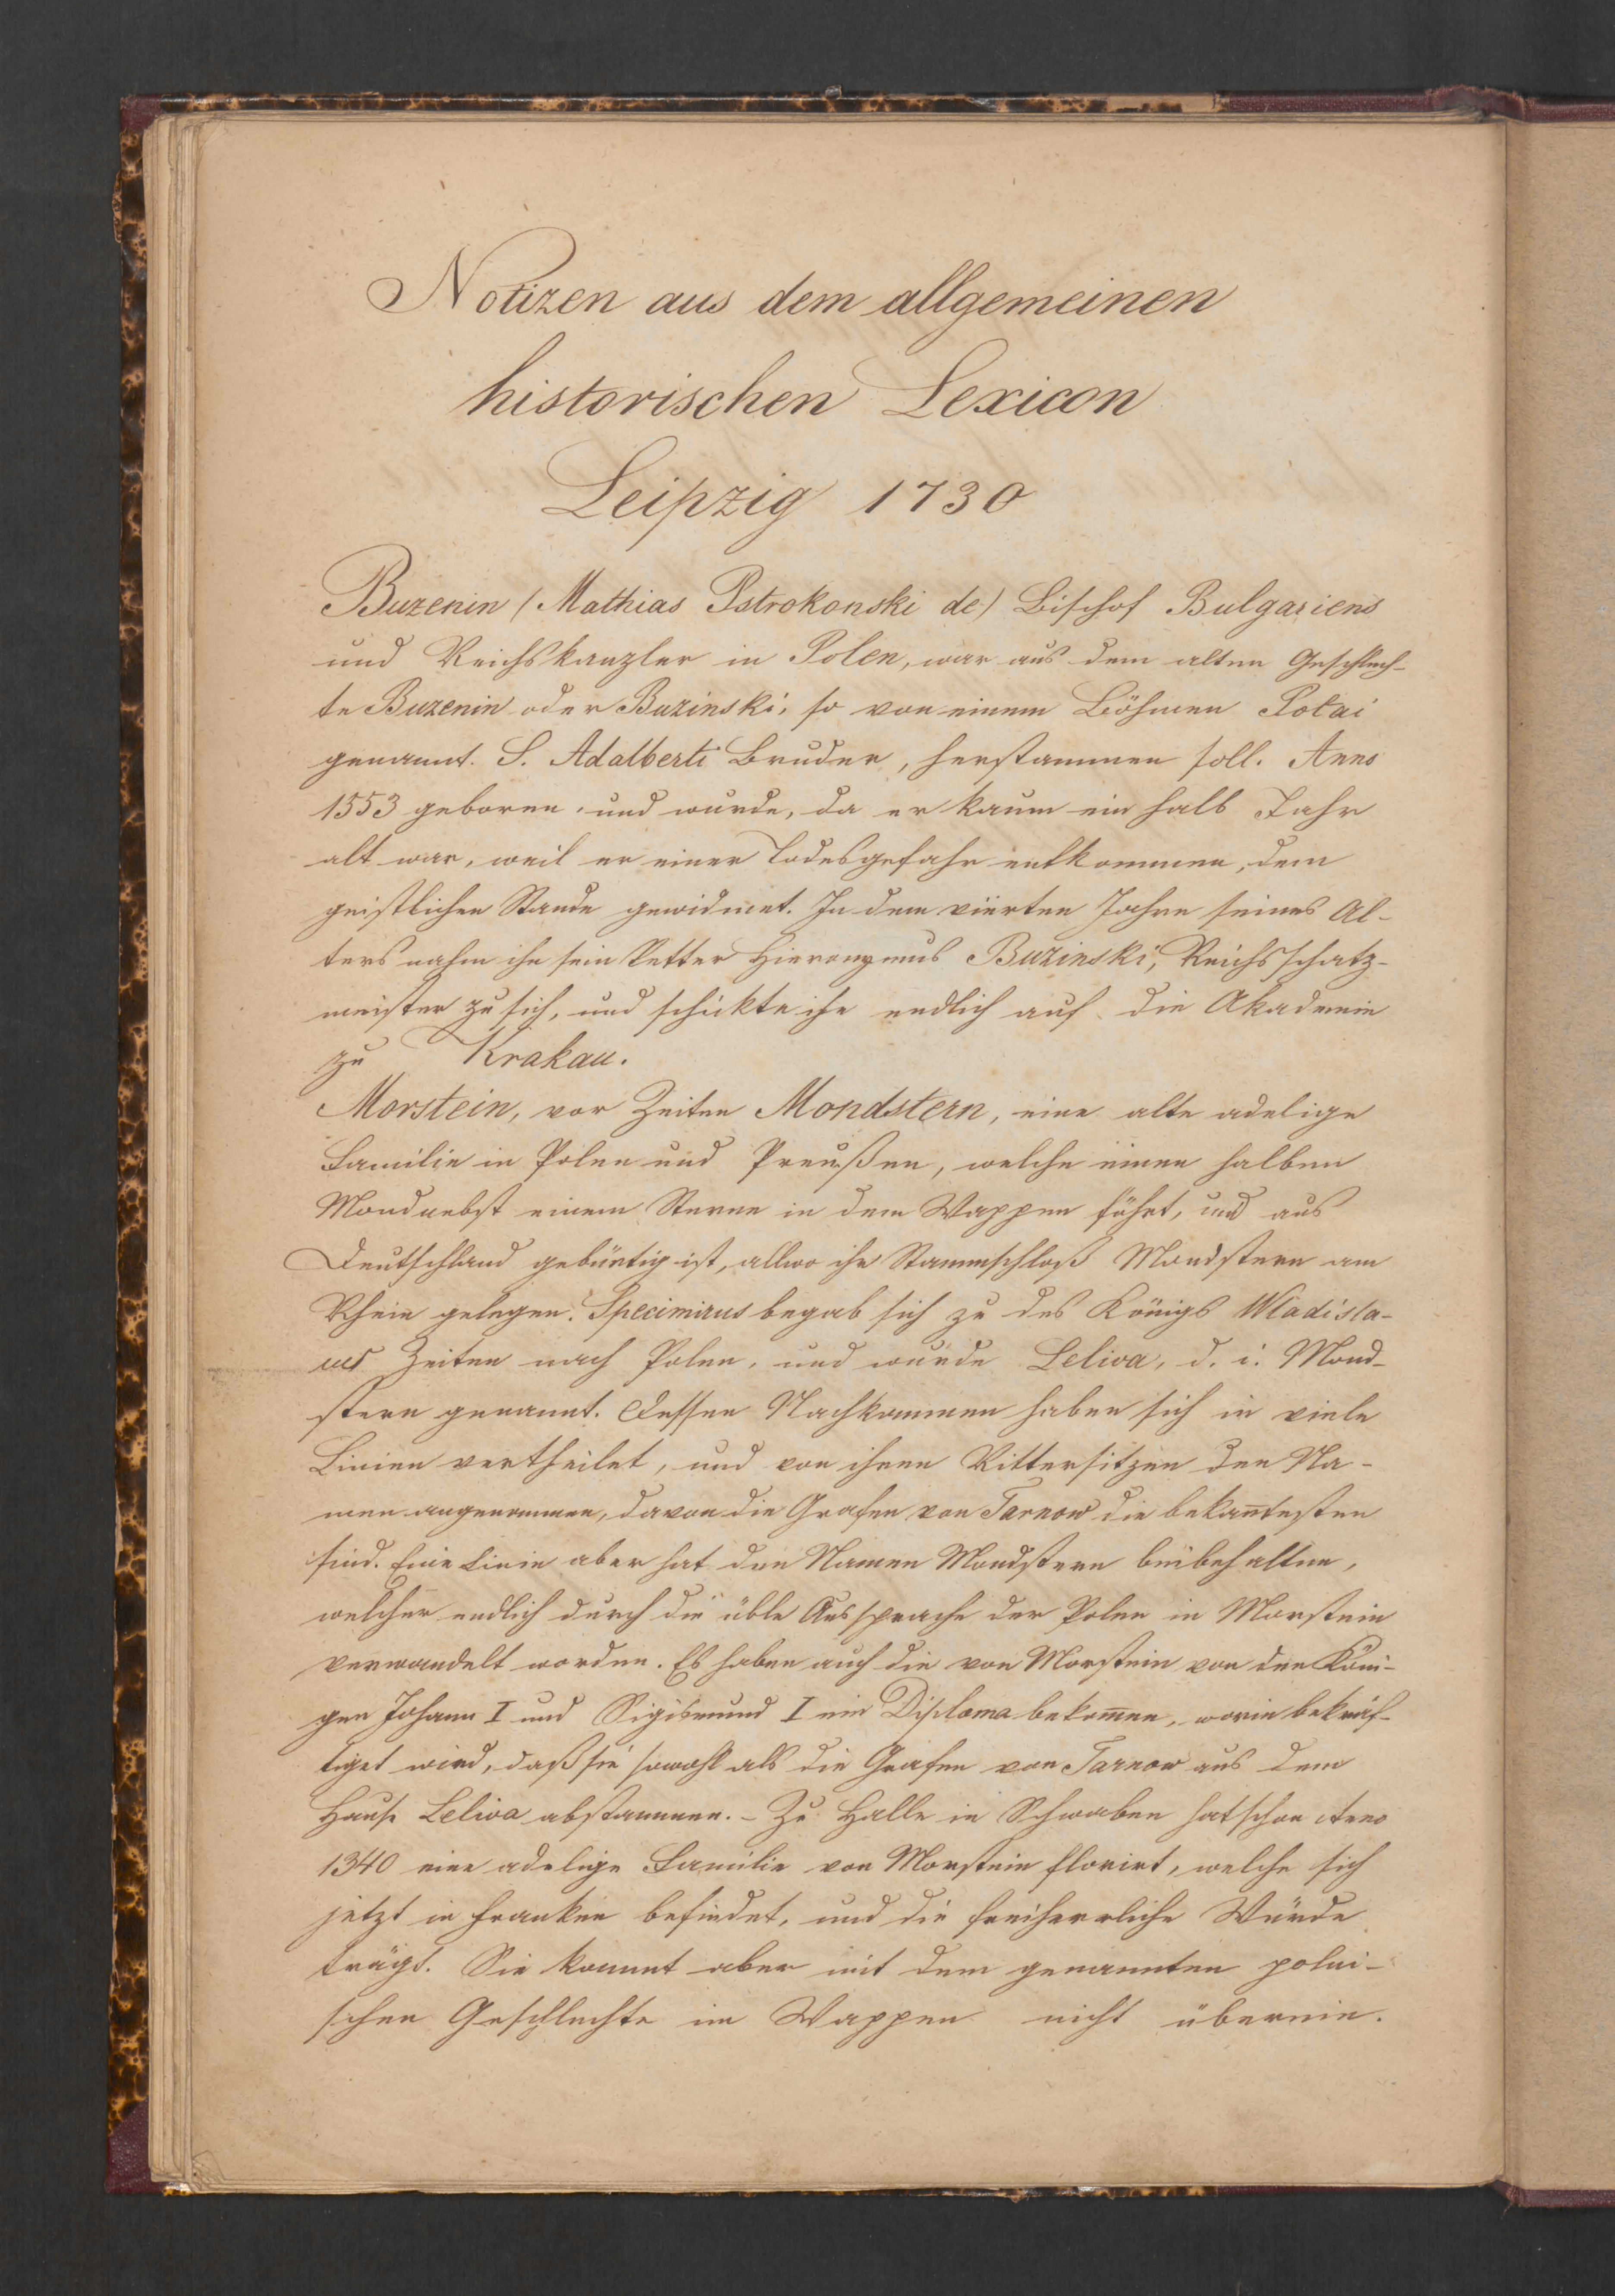 Notizen aus dem allgemeinen
historischen Lexicon
Leipzig 1730
Buzenin (Mathias Pstrokonski de) Bischof Bulgariens
und Reichskanzler in Polen, war aus dem alten Geschlech-
te Buzenin oder Buzinski, so von einem Böhmen Potai
genannt. S. Adalberti Bruder, herstammen soll. Anno
1553 geboren, und wurde, da er kaum ein halb Jahr
alt war, weil er einer Todesgefahr entkommen, dem
geistlichen Stande gewidmet. In dem vierten Jahre seines Al-
ters nahm ihn sein Vetter Hieronymus Buzinski, Reichsschatz-
meister zu sich, und schickte ihn endlich auf die Akademie
zu Krakau.
Morstein, vor Zeiten Mondstern, eine alte adelige
Familie in Polen und Preußen, welche einen halben
Mond nebst einem Sterne in dem Wappen führt, und aus
Deutschland gebürtig ist, allwo ihr Stammschloß Mondstern am
Rhein gelegen. Specimirus begab sich zu des Königs Wladisla-
us Zeiten nach Polen, und wurde Leliva, d. i. Mond-
stern genannt. Dessen Nachkommen haben sich in viele
Linien vertheilet, und von ihren Rittersitzen den Na-
men angenommen, davon die Grafen von Tarnow die bekan̅testen
sind. Eine Linie aber hat den Namen Mondstern beibehalten,
welcher endlich durch die üble Aussprache der Polen in Morstein
verwandelt worden. Es haben auch die von Morstein von den Köni-
gen Johann I und Sigismund I ein Diploma bekom̅en, worin bekräf-
tiget wird, daß sie sowohl als die Grafen von Tarnow aus dem
Hause Leliva abstammen. - Zu Halle in Schwaben hat schon Anno
1340 eine adelige Familie von Morstein florirt, welche sich
jetzt in Franken befindet, und die freiherrliche Würde
trägt. Sie kommt aber mit dem genannten polni-
schen Geschlechte im Wappen nicht überein.